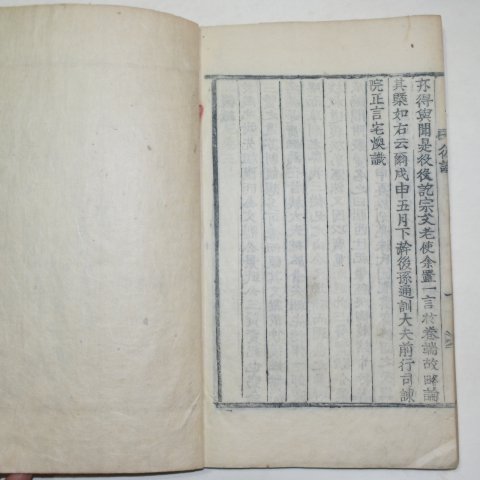 亦得與聞是役後訖宗丈老使余置一言於卷端故略論
其槩如右云爾戊申五月下澣後孫通訓大夫前行司諫
院正言宅煥識